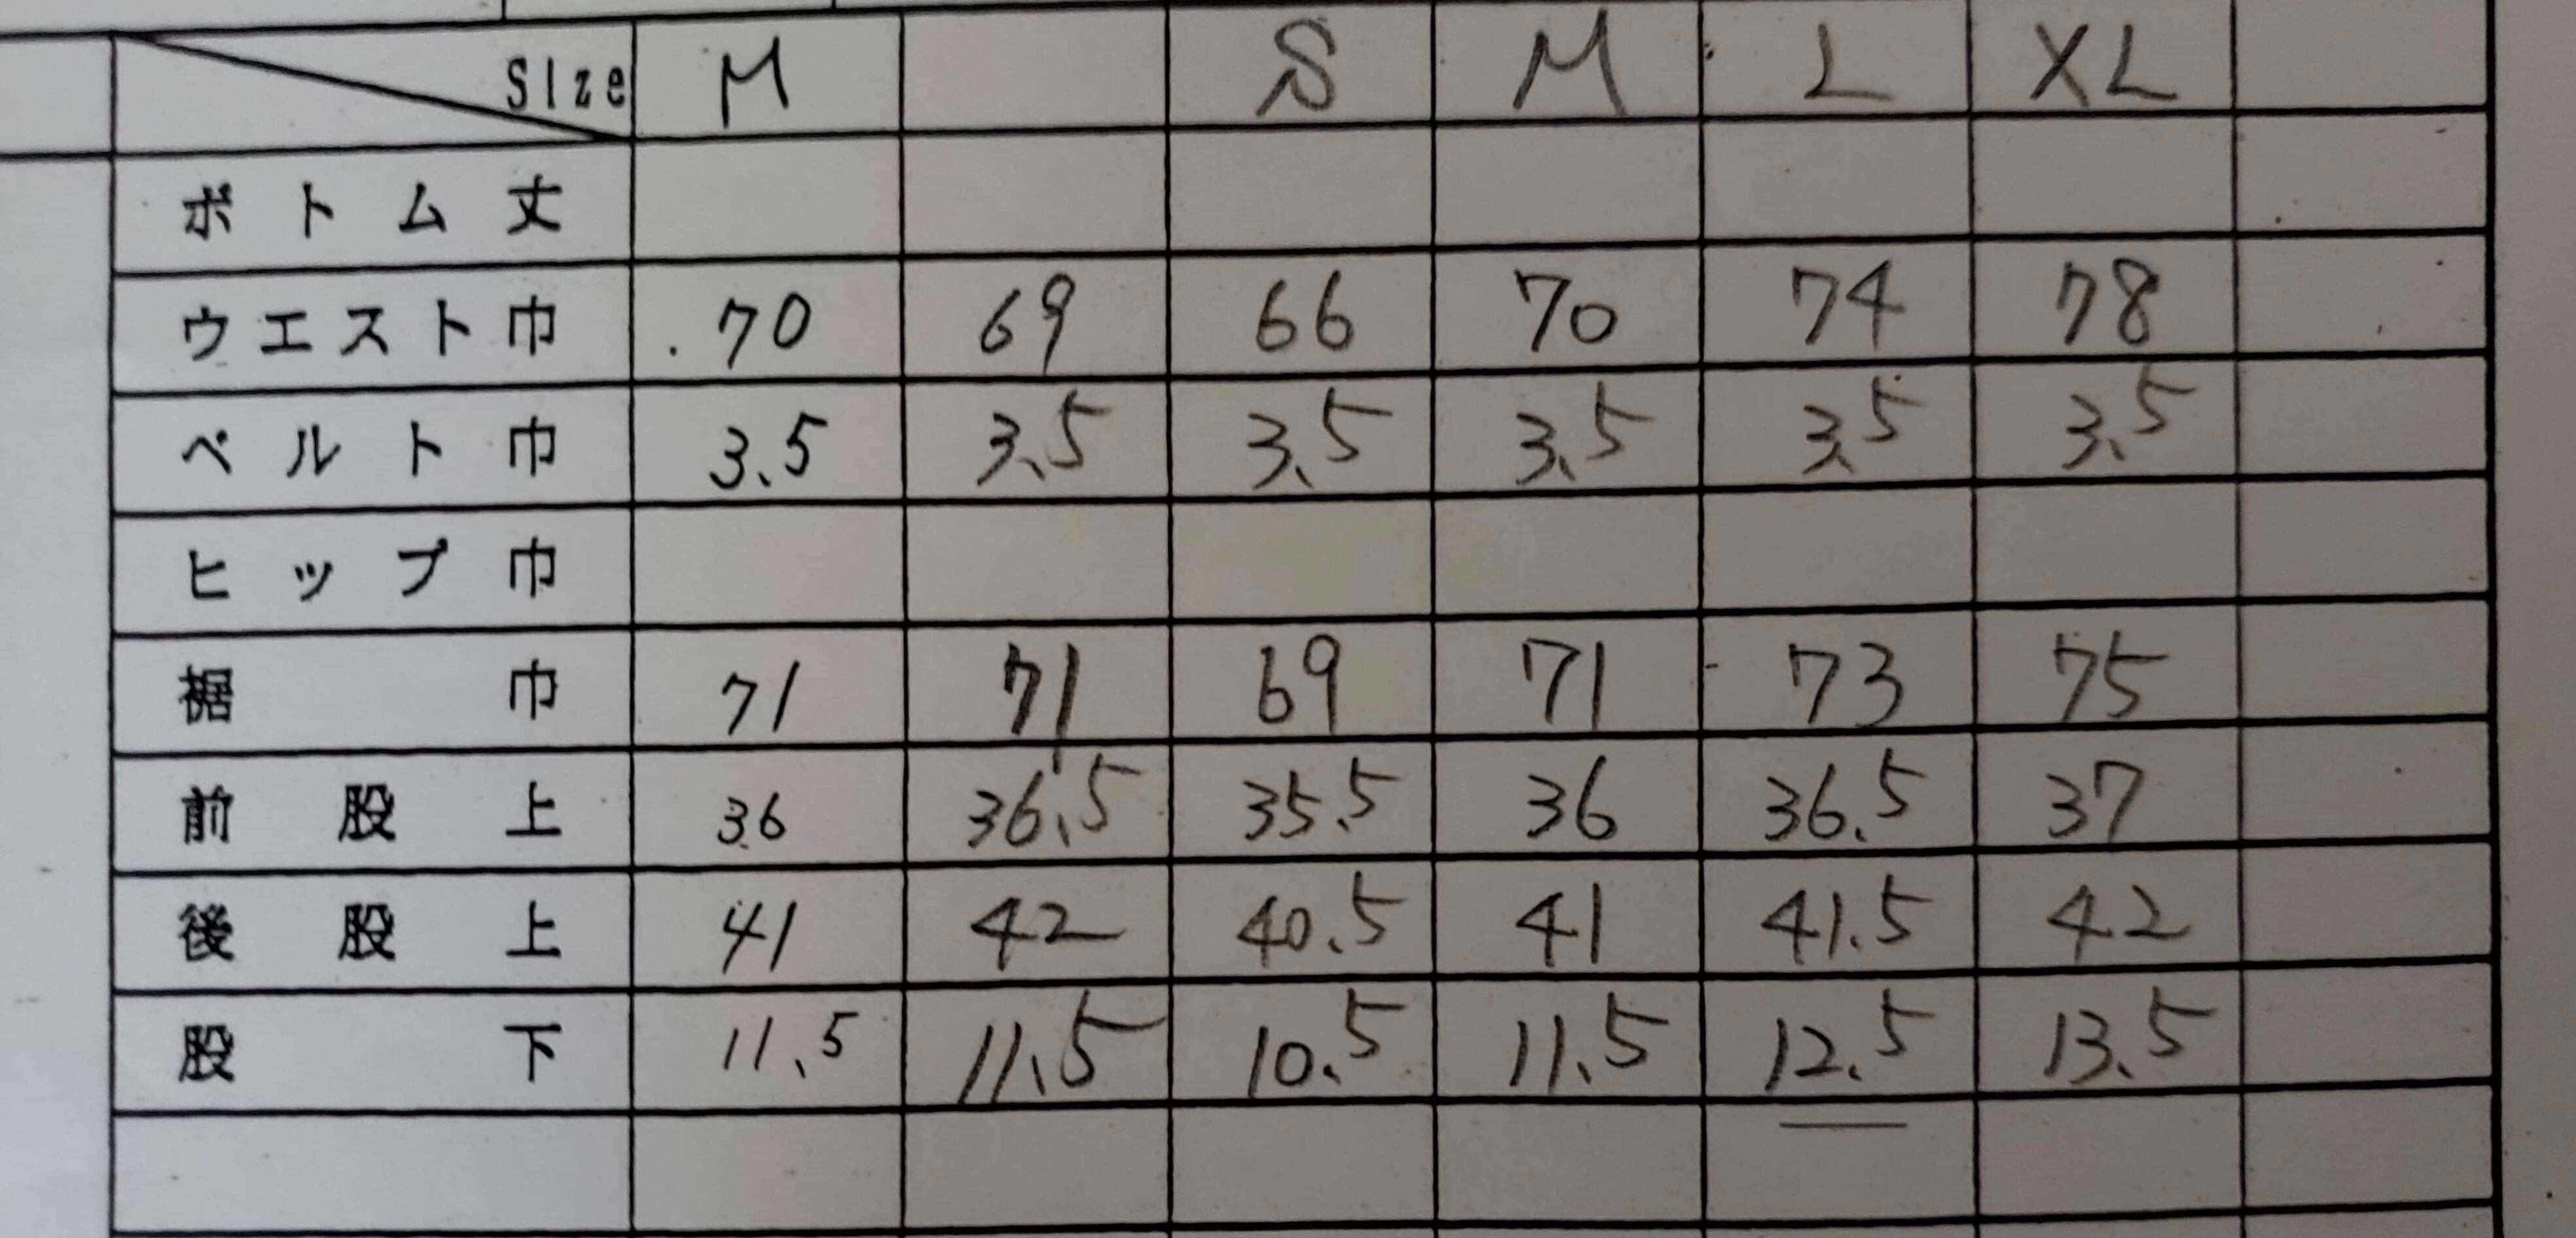 Size M S M L XL
ボトム丈
ウエスト巾 70 69 66 70 74 78
ベルト巾 3.5 3.5 3.5 3.5 3.5 3.5
ヒップ巾
裾巾 71 71 69 71 73 75
前股上 36 36.5 35.5 36 36.5 37
後股上 41 42 40.5 41 41.5 42
股下 11.5 11.5 10.5 11.5 12.5 13.5